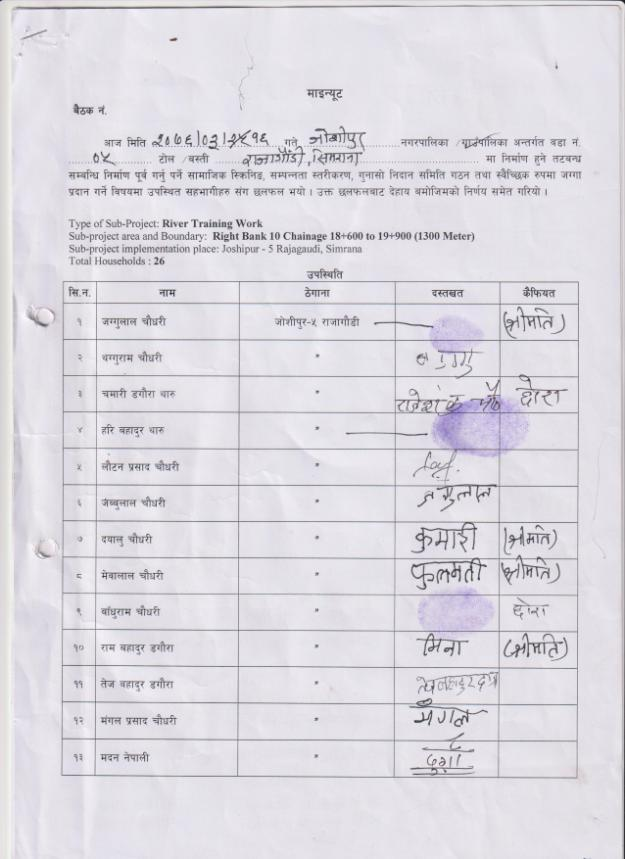 माइन्यूट
बैठक नं.
आज मिति २०७६/०३/ १६ गते जोशीपुर नगरपालिका /गाउँपालिका अन्तर्गत वडा नं.
०५ टोल /बस्ती राजागौंडी, सिमराना मा निर्माण हुने तटबन्ध
सम्बन्धि निर्माण पूर्व गर्नु पर्ने सामाजिक स्क्रिनिङ, सम्पन्नता स्तरीकरण, गुनासो निदान समिति गठन तथा स्वैच्छिक रुपमा जग्गा
प्रदान गर्ने विषयमा उपस्थित सहभागीहरु संग छलफल भयो । उक्त छलफलबाट देहाय बमोजिमको निर्णय समेत गरियो ।
Type of Sub-Project: River Training Work
Sub-project area and Boundary: Right Bank 10 Chainage 18+600 to 19+900 (1300 Meter)
Sub-project implementation place: Joshipur - 5 Rajagaudi, Simrana
Total Households : 26
उपस्थिति
सि.न. नाम ठेगाना दस्तखत कैफियत
१ जग्गुलाल चौधरी जोशीपुर-५ राजागौडी (श्रीमति)
२ थग्गुराम चौधरी "
३ चमारी डगौरा थारु " छोरा
४ हरि बहादुर थारु "
५ लौटन प्रसाद चौधरी "
६ जब्बुलाल चौधरी "
७ दयालु चौधरी " कुमारी (श्रीमति)
८ मेवालाल चौधरी " फुलमती (श्रीमति)
९ बाँधुराम चौधरी " छोरा
१० राम बहादुर डगौरा " मिना (श्रीमति)
११ तेज बहादुर डगौरा "
१२ मंगल प्रसाद चौधरी " मंगल
१३ मदन नेपाली "